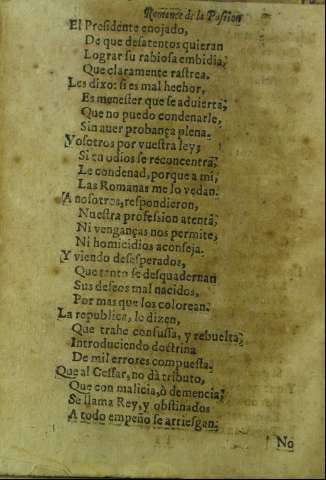 Romance de la Passion
El Presidente enojado,
De que desatentos quieran
Lograr su rabiosa embidia,
Que claramente rastrea.
Les dixo: si es mal hechor,
Es menester que se advierta,
Que no puedo condenarle,
Sin aver probança plena.
Vosotros por vuestra ley,
Si en odios se reconcentra,
Le condenad, porque a mi,
Las Romanas me lo vedan.
A nosotros, respondieron,
Nuestra profession atenta,
Ni venganças nos permite,
Ni homicidios aconseja.
Y viendo desesperados,
Que tanto se desquadernan
Sus deseos mal nacidos,
Por mas que los colorean.
La republica, le dizen,
Que trahe confussa, y rebuelta,
Introduciendo doctrina
De mil errores compuesta.
Que al Cessar, no dà tributo,
Que con malicia, ò demencia,
Se llama Rey, y obstinados
A todo empeño se arriesgan.
No